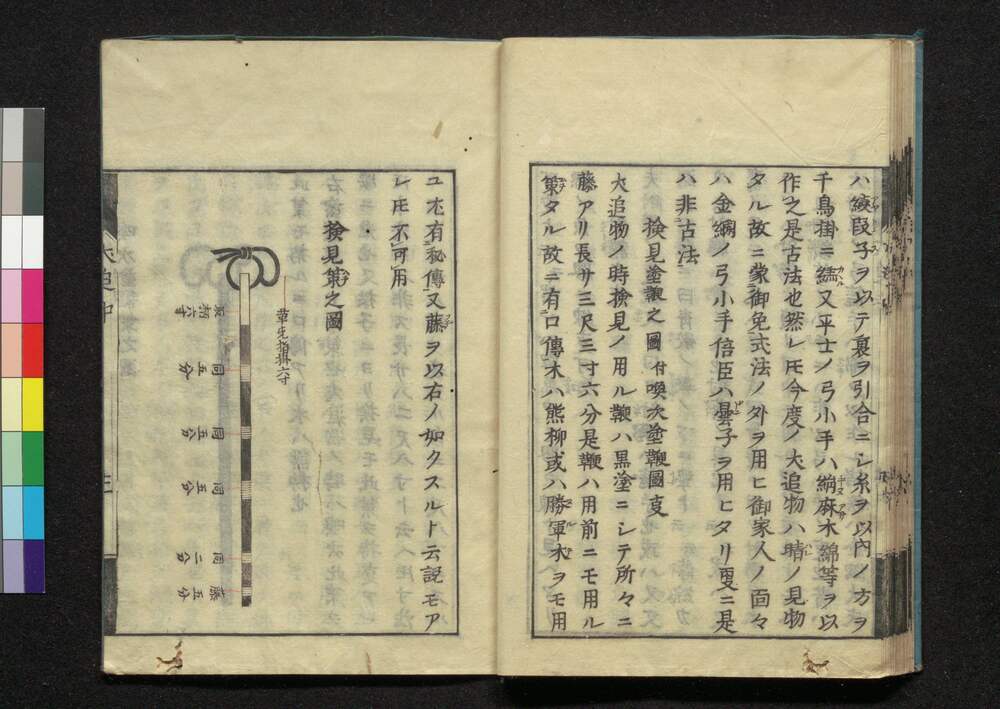 ハ綾段子ヲ以テ裏ヲ引合ニシ糸ヲ以内ノ方ヲ
千鳥掛ニ繻又平士ノ弓小手ハ絹麻木綿等ヲ以
作之是古法也然レ𪜈今度ノ犬追物ハ晴ノ見物
タル故ニ蒙御免式法ノ外ヲ用ヒ御家人ノ面々
ハ金襴ノ弓小手倍臣ハ曇子ヲ用ヒタリ更ニ是
ハ非古法
検見塗鞭之圖 付喚次塗鞭圖
犬追物ノ時検見ノ用ル鞭ハ黒塗ニシテ所々ニ
藤アリ長サ三尺三寸六分是鞭ハ用前ニモ用ル
策タル故ニ有口傳木ハ熊柳或ハ勝軍木ヲモ用
ユ尤有秘傳又藤ヲ以右ノ如クスルト云説モア
レ𪜈不可用
検見策之圖
取柄六寸
同五分
同五分
同五分
同二分
藤五分
犬追中